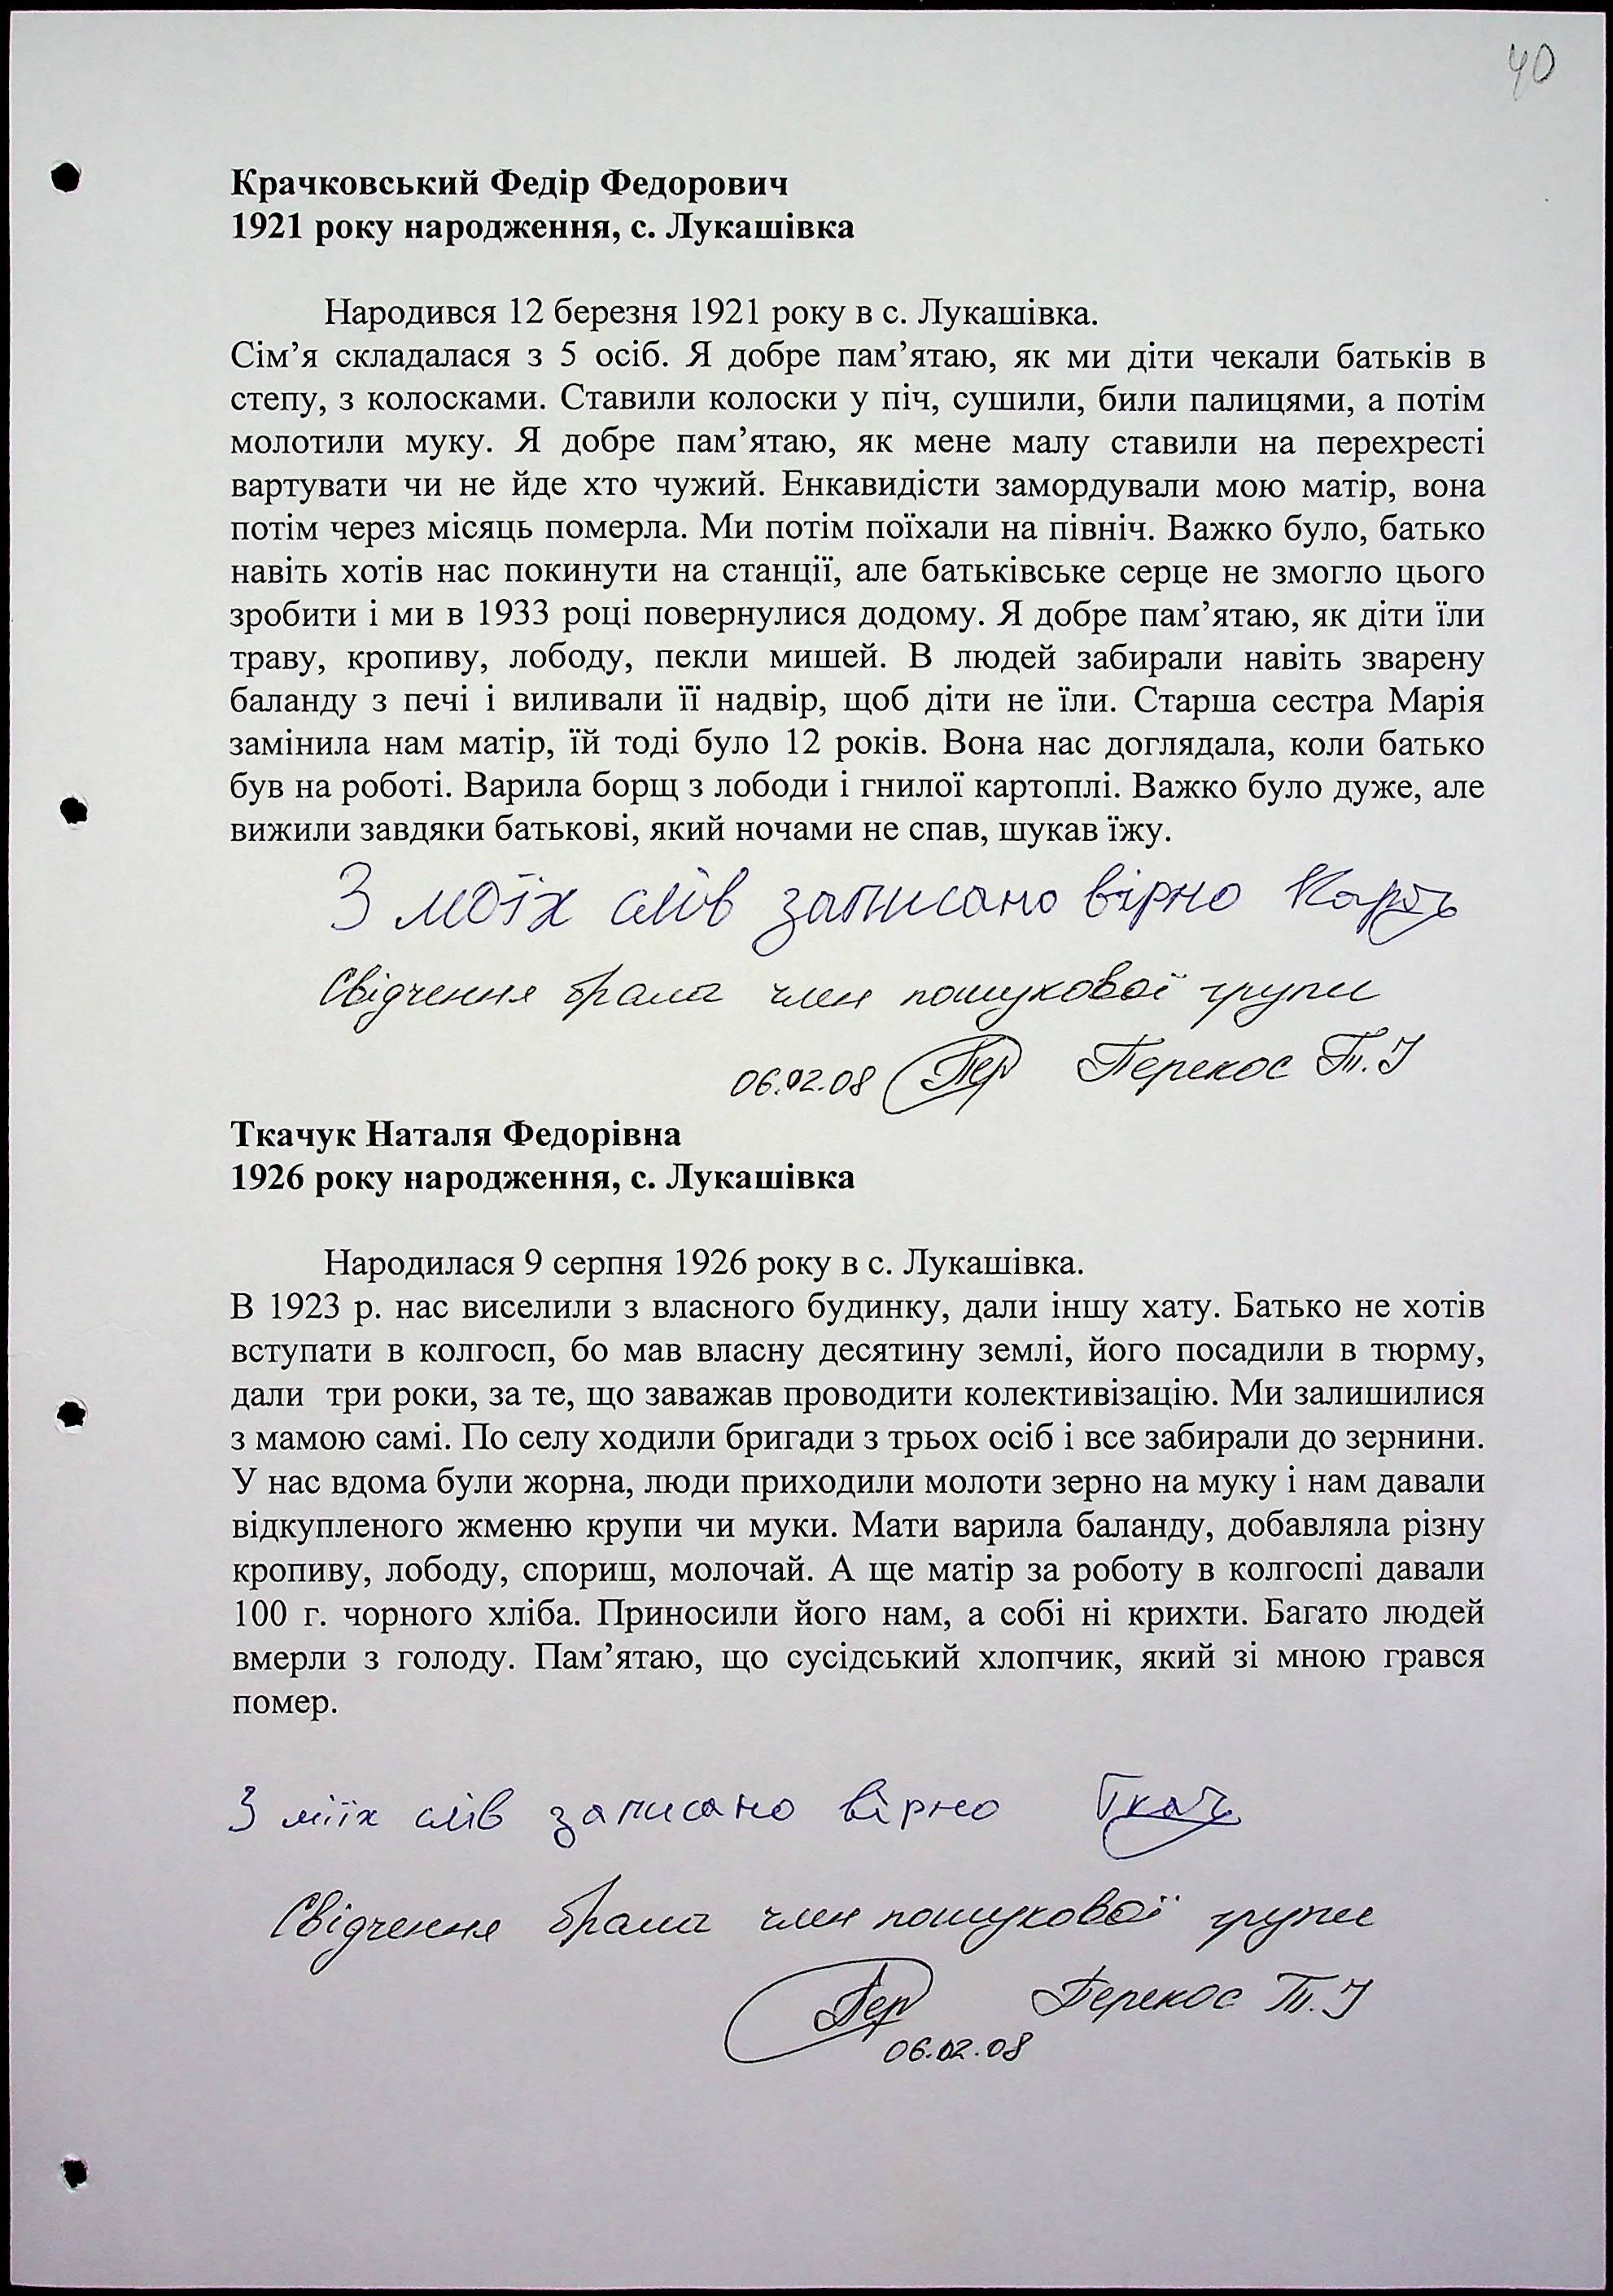 40
Крачковський Федір Федорович
1921 року народження, с. Лукашівка
Народився 12 березня 1921 року в с. Лукашівка.
Сім’я складалася з 5 осіб. Я добре пам’ятаю, як ми діти чекали батьків в
степу, з колосками. Ставили колоски у піч, сушили, били палицями, а потім
молотили муку. Я добре пам’ятаю, як мене малу ставили на перехресті
вартувати чи не йде хто чужий. Енкавидісти замордували мою матір, вона
потім через місяць померла. Ми потім поїхали на північ. Важко було, батько
навіть хотів нас покинути на станції, але батьківське серце не змогло цього
зробити і ми в 1933 році повернулися додому. Я добре пам’ятаю, як діти їли
траву, кропиву, лободу, пекли мишей. В людей забирали навіть зварену
баланду з печі і виливали її надвір, щоб діти не їли. Старша сестра Марія
замінила нам матір, їй тоді було 12 років. Вона нас доглядала, коли батько
був на роботі. Варила борщ з лободи і гнилої картоплі. Важко було дуже, але
вижили завдяки батькові, який ночами не спав, шукав їжу.
З моїх слів записано вірно
Свідчення брала член пошукової групи
06.02.08 Пер Перекос Т.І
Ткачук Наталя Федорівна
1926 року народження, с. Лукашівка
Народилася 9 серпня 1926 року в с. Лукашівка.
В 1923 р. нас виселили з власного будинку, дали іншу хату. Батько не хотів
вступати в колгосп, бо мав власну десятину землі, його посадили в тюрму,
дали три роки, за те, що заважав проводити колективізацію. Ми залишилися
з мамою самі. По селу ходили бригади з трьох осіб і все забирали до зернини.
У нас вдома були жорна, люди приходили молоти зерно на муку і нам давали
відкупленого жменю крупи чи муки. Мати варила баланду, добавляла різну
кропиву, лободу, спориш, молочай. А ще матір за роботу в колгоспі давали
100 г. чорного хліба. Приносили його нам, а собі ні крихти. Багато людей
вмерли з голоду. Пам’ятаю, що сусідський хлопчик, який зі мною грався
помер.
З міїх слів записано вірно Ткач
Свідчення брала член пошукової групи
Пер Перекос Т.І
06.02.08